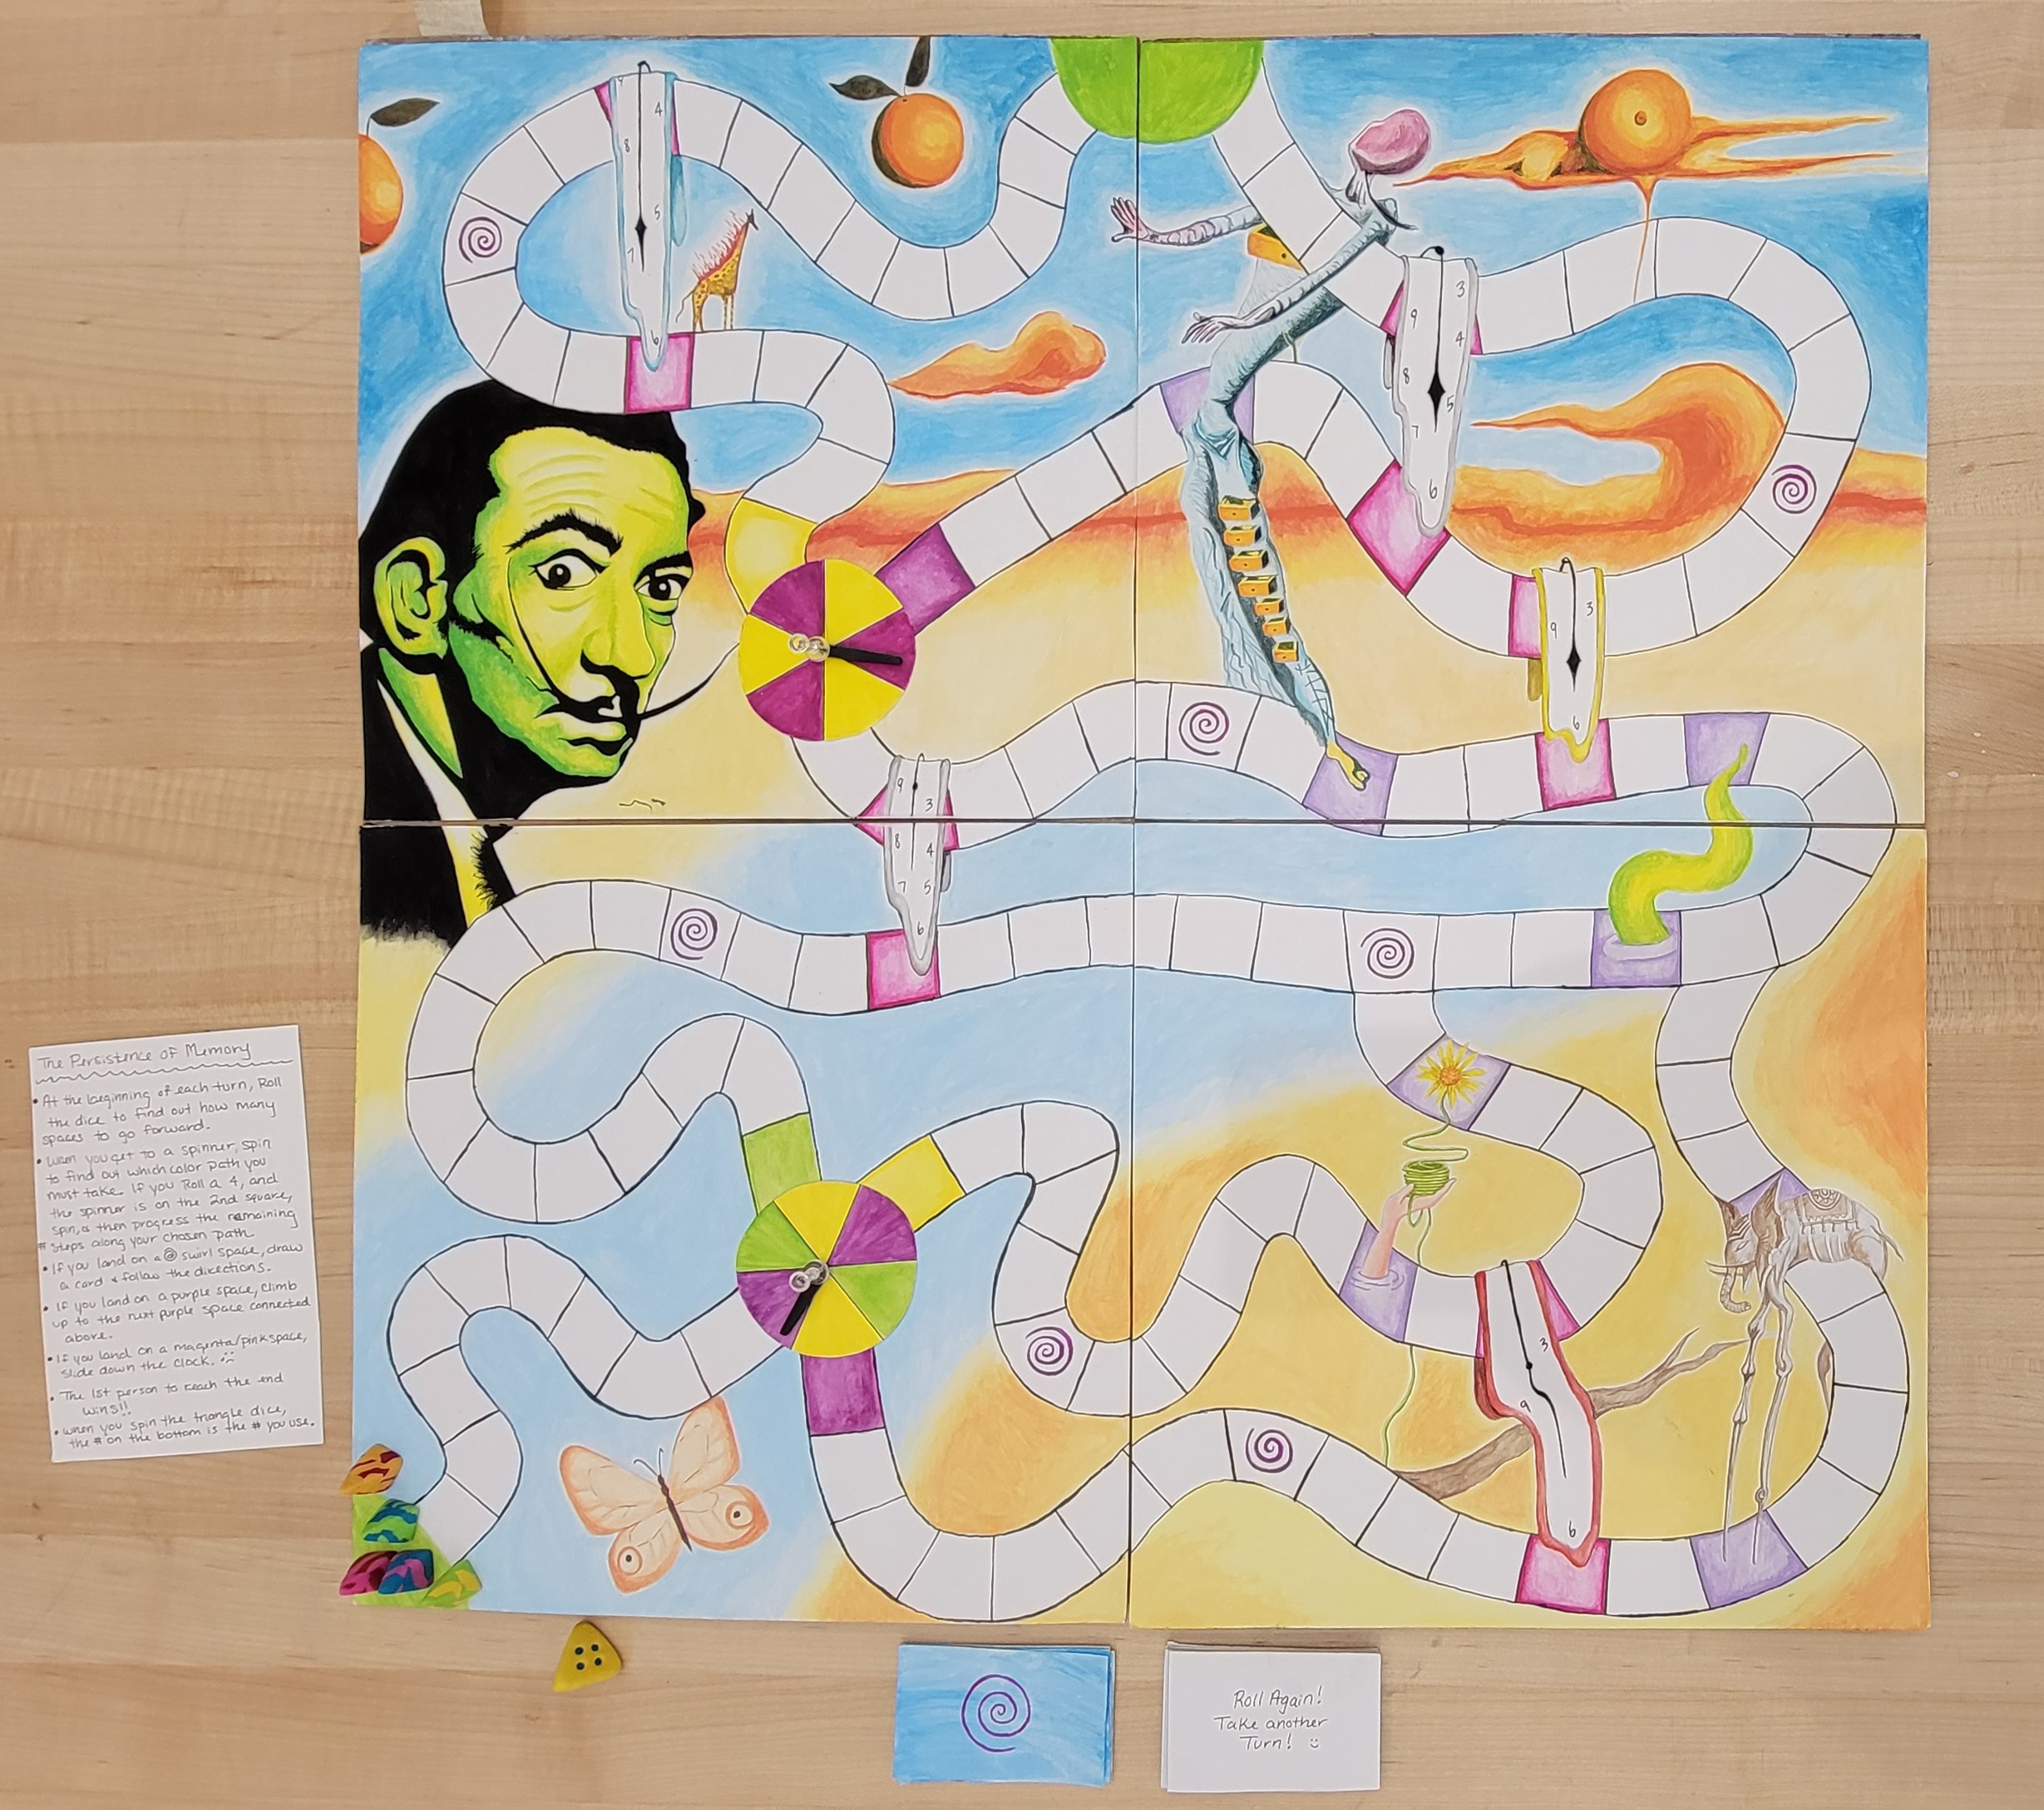 The Persistence of Memory
• At the beginning of each turn, Roll
the dice to find out how many
spaces to go forward.
• When you get to a spinner, spin
to find out which color path you
must take. If you Roll a 4, and
the spinner is on the 2nd square,
spin, & then progress the remaining
# steps along your chosen path.
• If you land on a swirl space, draw
a card & follow the directions.
• If you land on a purple space, climb
up to the next purple space connected
above.
• If you land on a magenta/pink space,
slide down the clock. :(
• The 1st person to reach the end
wins!!
• When you spin the triangle dice,
the # on the bottom is the # you use.
4
8
5
7
6
3
9
4
8
5
7
6
3
9
6
9
3
8
4
7
5
6
3
9
6
Roll Again!
Take another
Turn! :)